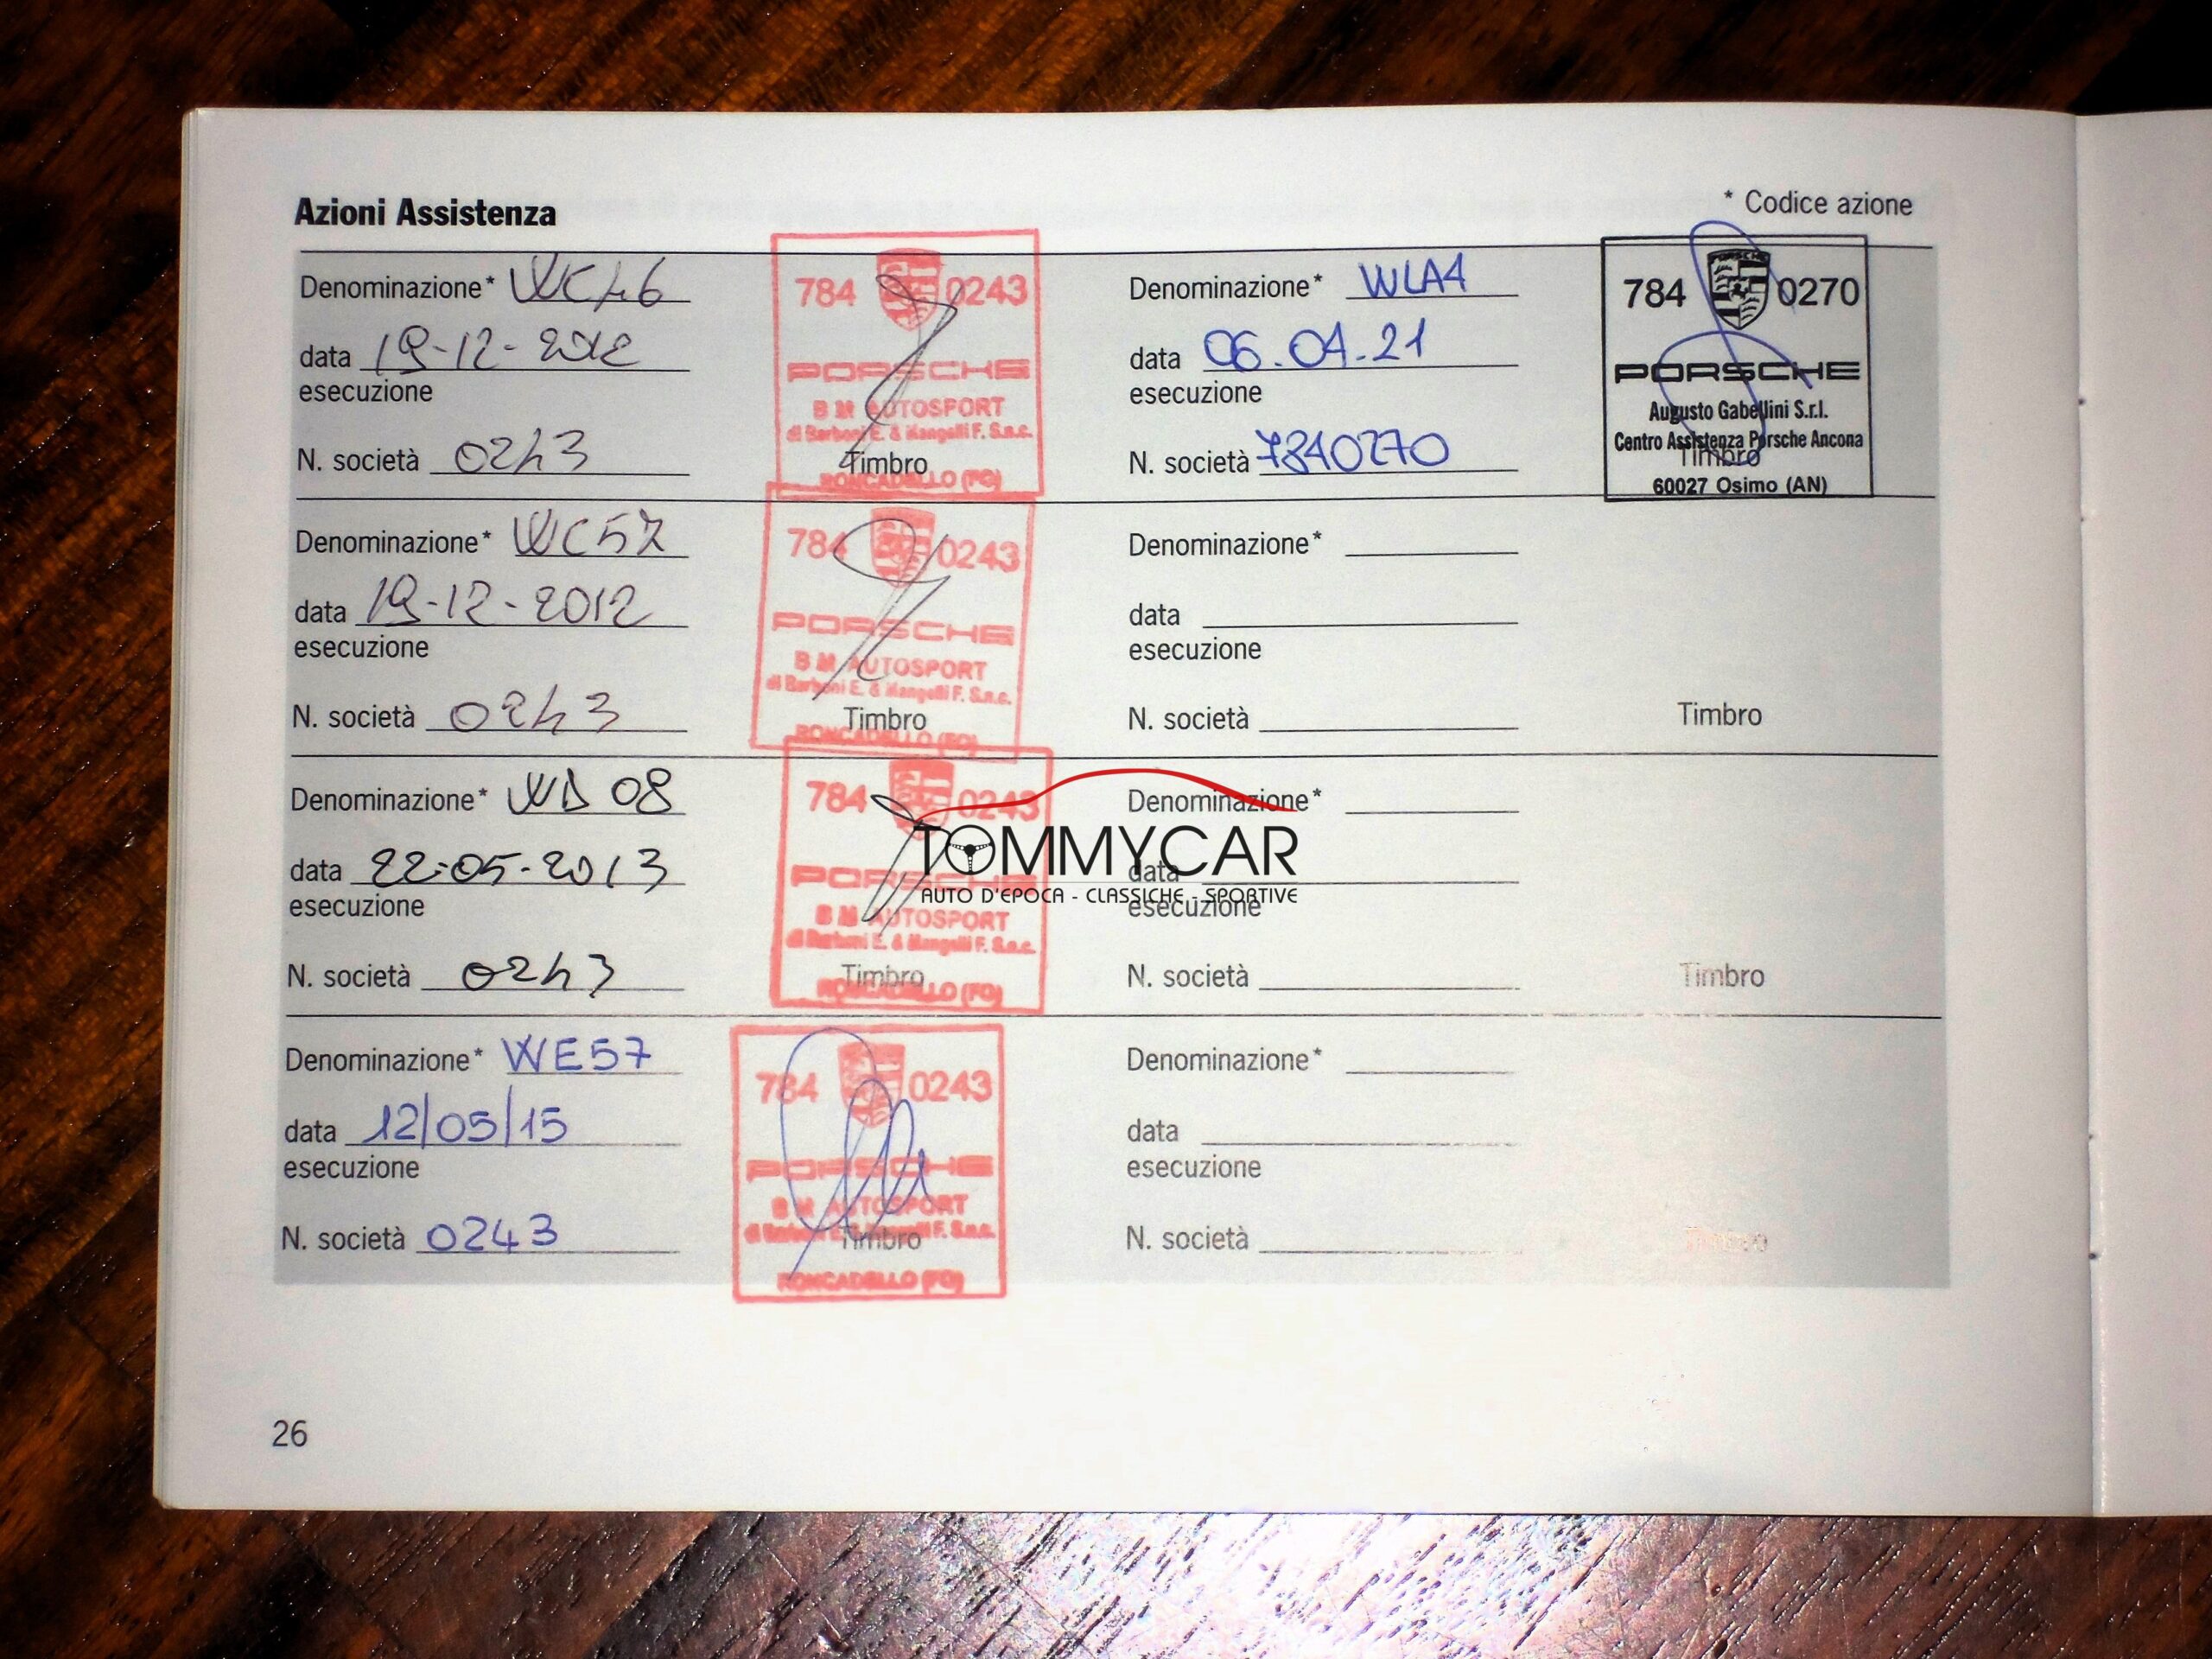 Azioni Assistenza
* Codice azione
Denominazione* WC46
data 19-12-2012
esecuzione
N. società 0243
784 0243
PORSCHE
BM AUTOSPORT
di Barboni E. & Mangelli F. S.n.c.
Timbro
RONCADELLO (FO)
Denominazione* WLA4
data 06.04.21
esecuzione
N. società 7840270
784 0270
PORSCHE
Augusto Gabellini S.r.l.
Centro Assistenza Porsche Ancona
Timbro
60027 Osimo (AN)
Denominazione* WC57
data 19-12-2012
esecuzione
N. società 0243
784 0243
PORSCHE
BM AUTOSPORT
di Barboni E. & Mangelli F. S.n.c.
Timbro
RONCADELLO (FO)
Denominazione*
data
esecuzione
N. società
Timbro
Denominazione* WD08
data 22-05-2013
esecuzione
N. società 0243
784 0243
PORSCHE
BM AUTOSPORT
di Barboni E. & Mangelli F. S.n.c.
Timbro
RONCADELLO (FO)
TOMMYCAR
AUTO D'EPOCA - CLASSICHE - SPORTIVE
Denominazione*
data
esecuzione
N. società
Timbro
Denominazione* WE57
data 12/05/15
esecuzione
N. società 0243
784 0243
PORSCHE
BM AUTOSPORT
di Barboni E. & Mangelli F. S.n.c.
Timbro
RONCADELLO (FO)
Denominazione*
data
esecuzione
N. società
26